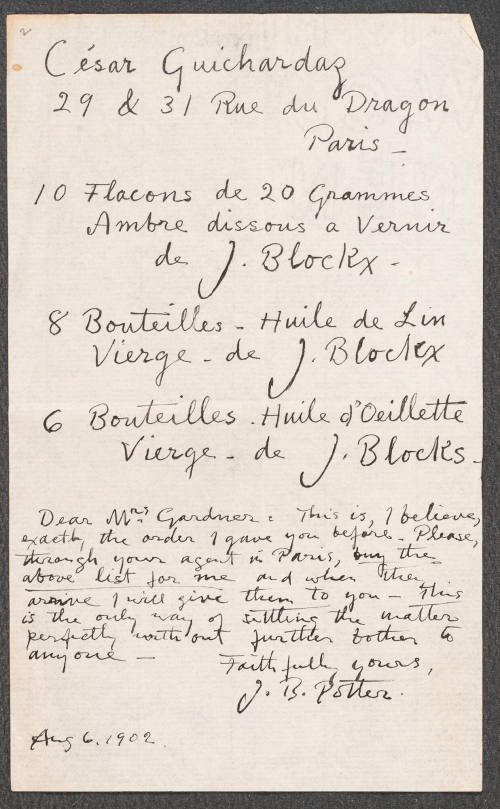 2
César Guichardaz
29 & 31 Rue du Dragon
Paris -
10 Flacons de 20 Grammes
Ambre dissous a Vernir
de J. Blockx -
8 Bouteilles - Huile de Lin
Vierge - de J. Blockx
6 Bouteilles - Huile d'Oeillette
Vierge - de J. Blocks -
Dear Mrs Gardner: This is, I believe,
exactly the order I gave you before - Please,
through your agent in Paris, buy the
above list for me and when they
arrive I will give them to you - This
is the only way of settling the matter
perfectly without further bother to
anyone -
Faithfully yours,
J. B. Potter.
Aug 6. 1902.